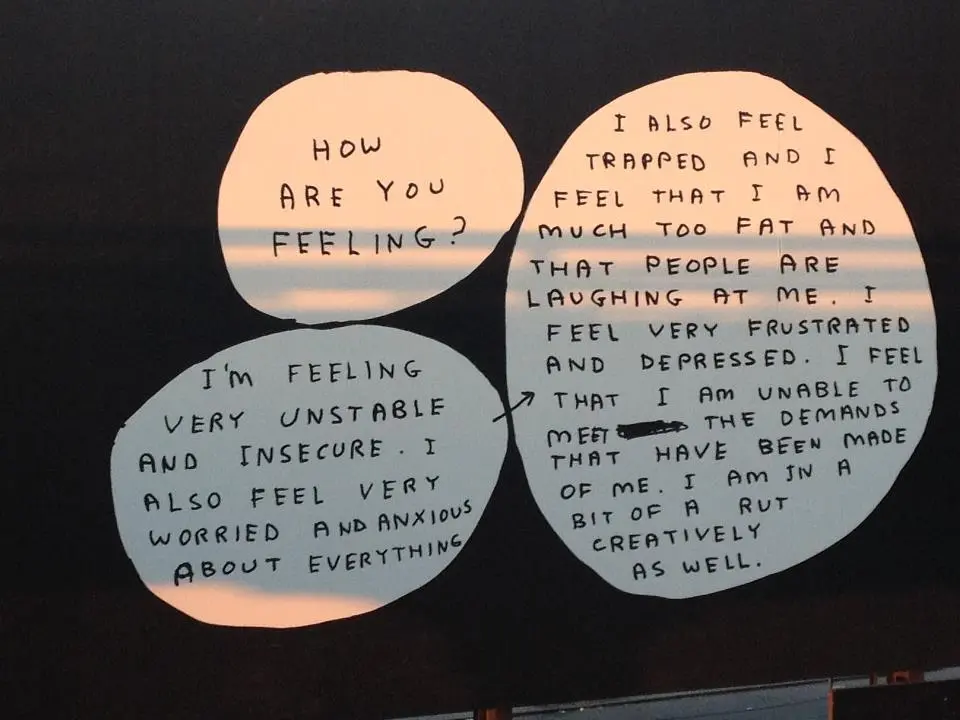 HOW
ARE YOU
FEELING?
I'M FEELING
VERY UNSTABLE
AND INSECURE. I
ALSO FEEL VERY
WORRIED AND ANXIOUS
ABOUT EVERYTHING
I ALSO FEEL
TRAPPED AND I
FEEL THAT I AM
MUCH TOO FAT AND
THAT PEOPLE ARE
LAUGHING AT ME. I
FEEL VERY FRUSTRATED
AND DEPRESSED. I FEEL
THAT I AM UNABLE TO
MEET THE DEMANDS
THAT HAVE BEEN MADE
OF ME. I AM IN A
BIT OF A RUT
CREATIVELY
AS WELL.